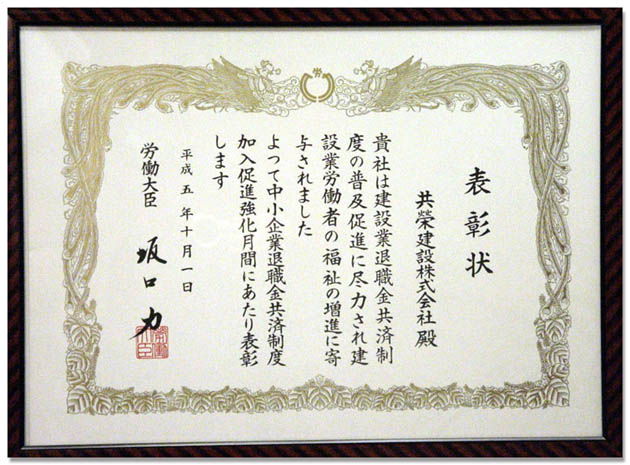 労
表彰状
共榮建設株式会社 殿
貴社は建設業退職金共済制
度の普及促進に尽力され建
設業労働者の福祉の増進に寄
与されました
よって中小企業退職金共済制度
加入促進強化月間にあたり表彰
します
平成五年十月一日
労働大臣 坂口力
労働大臣